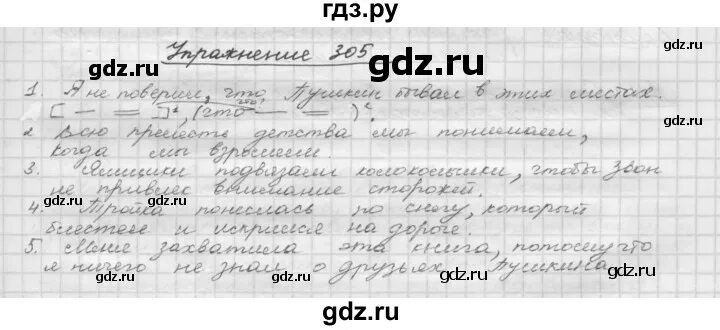 гдз.ру
Упражнение 305
1. Я не поверил, что Пушкин бывал в этих местах.
[ — = ], (что — = ).
2 Всю прелесть детства мы понимаем,
когда мы взрослеем.
3. Ямщики подвязали колокольчики, чтобы звон
не привлёк внимание сторожей.
4. Тройка понеслась по снегу, который
блестел и искрился на дороге.
5. Меня захватила эта книга, потому что
я ничего не знал о друзьях Пушкина
gdz.ru gdz.ru gdz.ru
gdz.ru gdz.ru gdz.ru
gdz.ru gdz.ru gdz.ru
gdz.ru gdz.ru gdz.ru